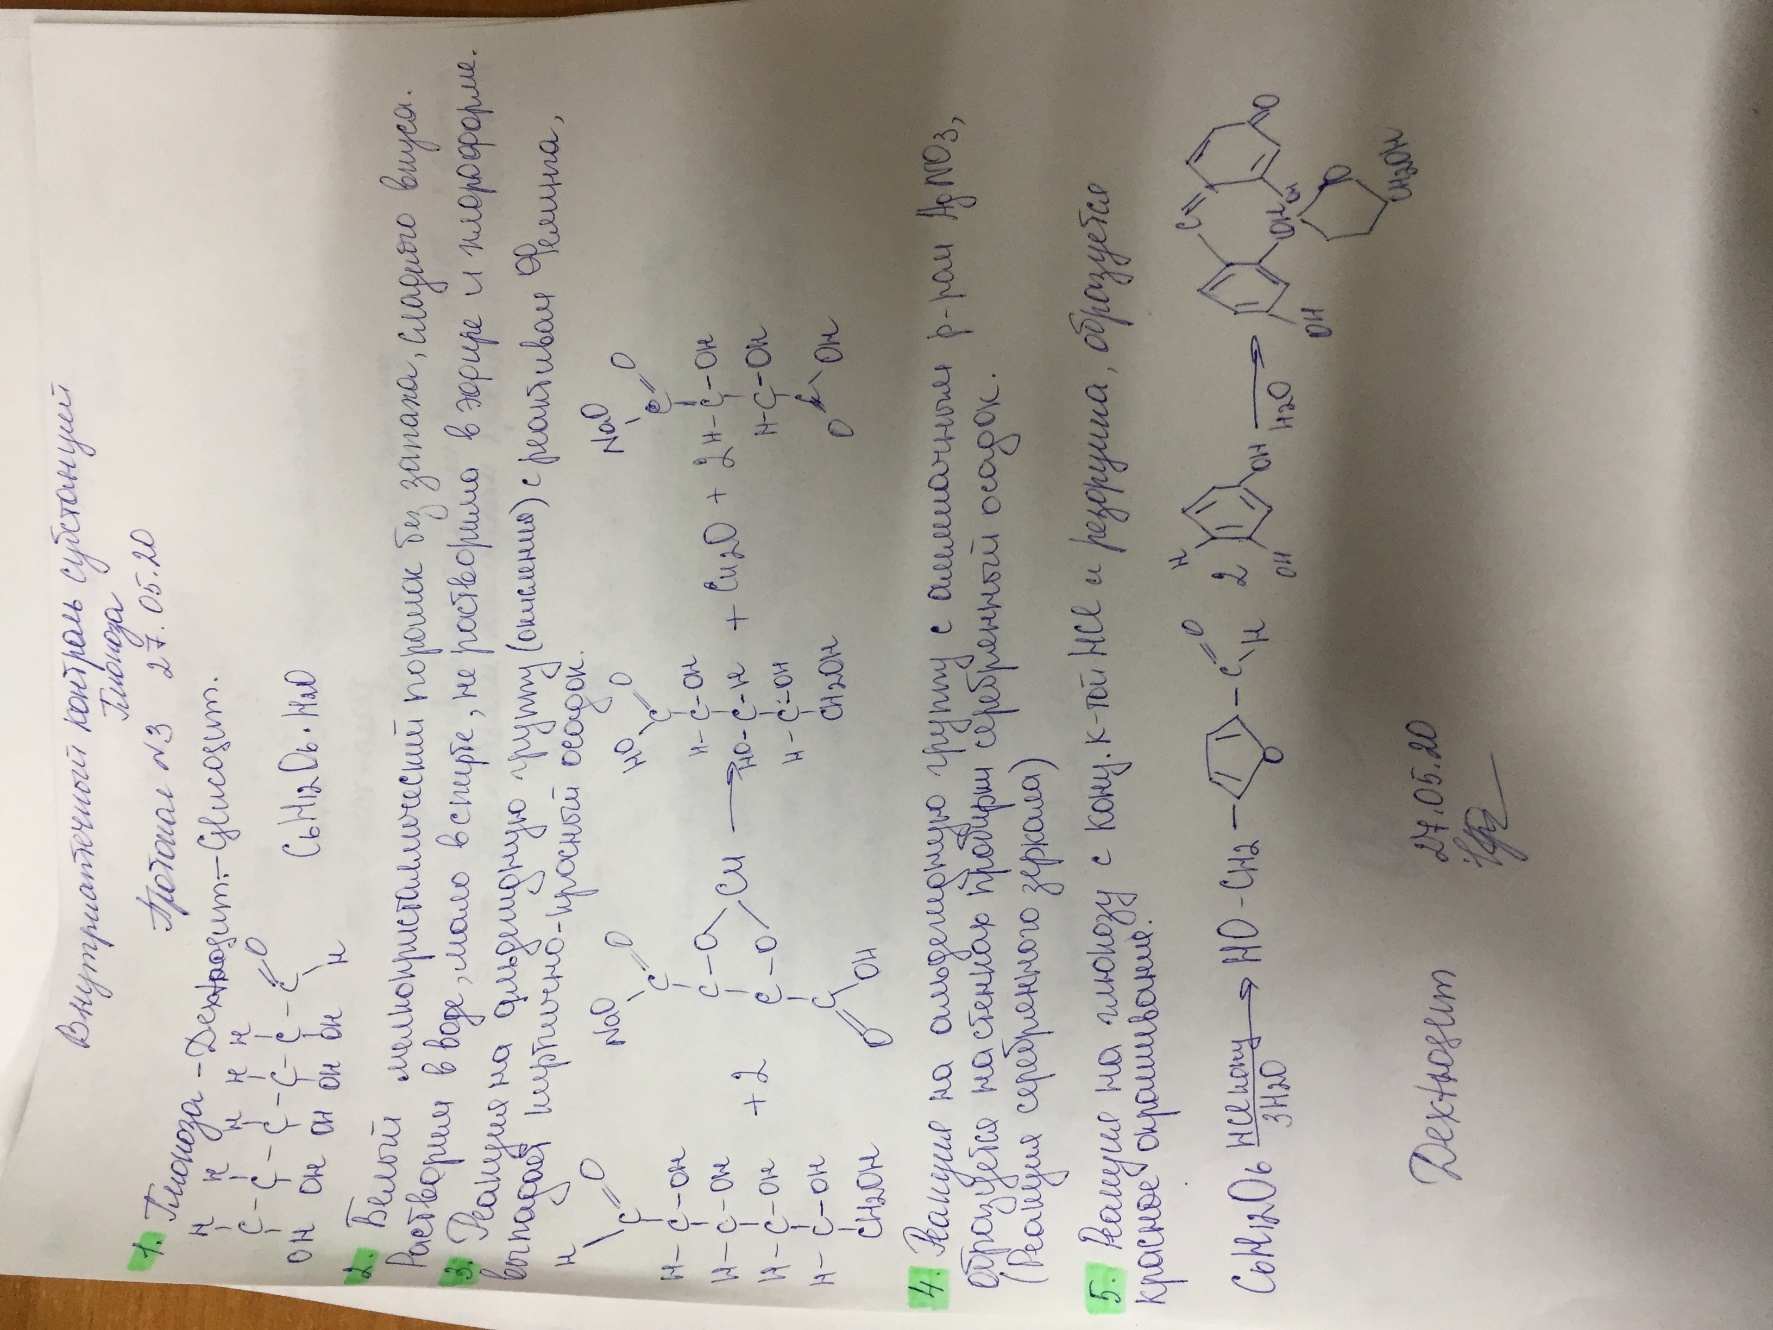 Внутриаптечный контроль субстанций
Глюкоза
Протокол №3 27.05.20
1. Глюкоза - Dextrosum - Glucosum.
H H H H H
C - C - C - C - C - C = O
OH OH OH OH OH H
C6H12O6 · H2O
2. Белый мелкокристаллический порошок без запаха, сладкого вкуса.
Растворим в воде, мало в спирте, не растворима в эфире и хлороформе.
3. Реакция на альдегидную группу (окисление) с реактивом Фелинга,
выпадает кирпично-красный осадок.
H C = O
H - C - OH
H - C - OH
H - C - OH
H - C - OH
CH2OH
+ 2
NaO C = O
C - O
C - O
Cu
C
O OH
HO C = O
H - C - OH
HO - C - H
H - C - OH
CH2OH
+ Cu2O + 2
NaO C = O
H - C - OH
H - C - OH
O C OH
4. Реакция на альдегидную группу с аммиачным р-ром AgNO3,
образуется на стенках пробирки серебренный осадок.
(Реакция серебренного зеркала)
5. Реакция на глюкозу с конц. к-той HCl и резорцина, образуется
красное окрашивание.
C6H12O6 HCl конц 3H2O HO - CH2 - O - C = O H 2 H OH OH H2O OH C OH OH O O CH2OH
Dextrosum 27.05.20